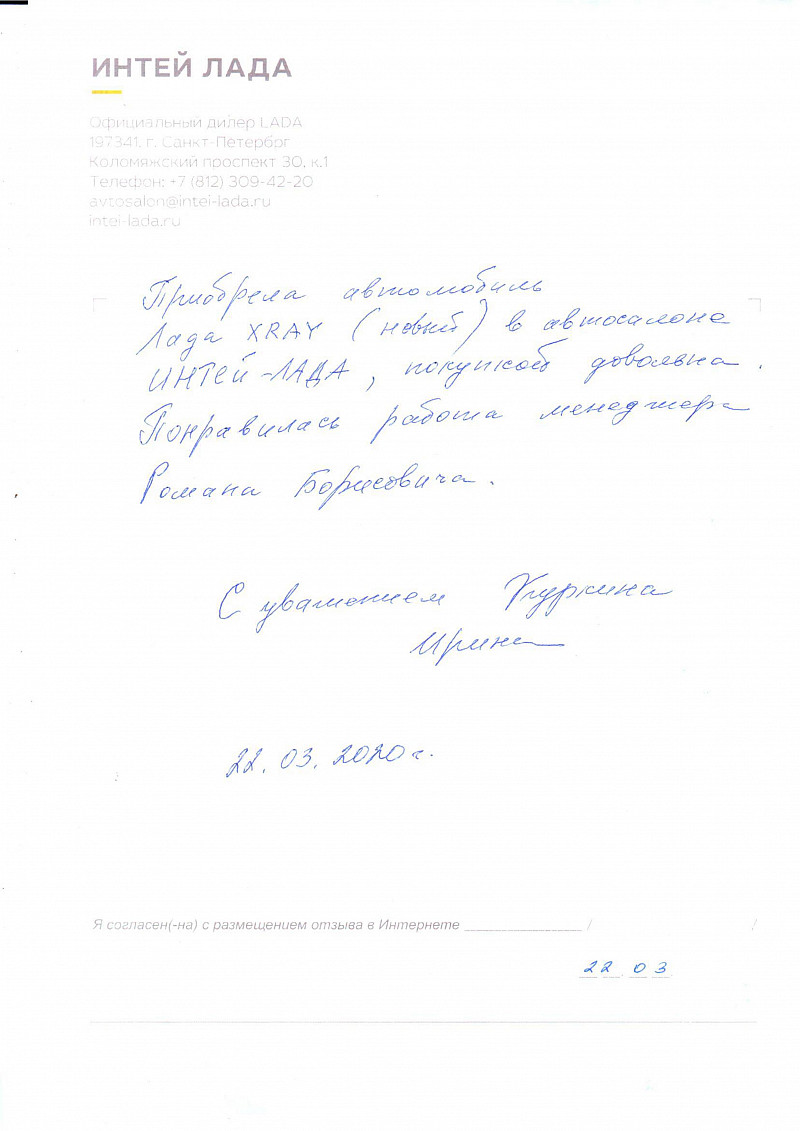 ИНТЕЙ ЛАДА
Официальный дилер LADA
197341, г. Санкт-Петербрг
Коломяжский проспект 30, к.1
Телефон: +7 (812) 309-42-20
avtosalon@intei-lada.ru
intei-lada.ru
Приобрела автомобиль
Лада XRAY (новый) в автосалоне
ИНТЕЙ-ЛАДА, покупкой довольна.
Понравилась работа менеджера
Романа Борисовича.
С уважением
Ирина
22.03.2020г.
Я согласен(-на) с размещением отзыва в Интернете ________________ / /
22 03